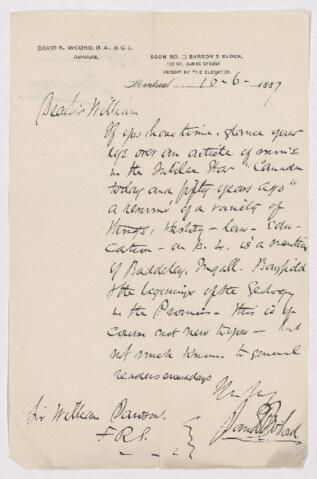 DAVID R. McCORD, M. A., B. C. L.
ADVOCATE.
ROOM NO. 3 BARRON'S BLOCK,
162 ST. JAMES STREET
ASCENT BY THE ELEVATOR.
Montreal 18-6-1887
Dear Sir William
If you have time, glance your
eye over an article of mine
in the Jubilee Star "Canada
today and fifty years ago"
a resumé of a variety of
things, History - Law - Edu-
cation - on p. 4. is a mention
of Baddeley, Ingall - Bayfield
& the beginnings of the Geology
in the Province - this is of
course not new to you - but
not much known to general
readers nowadays
David R McCord
Sir William Dawson
F R S.